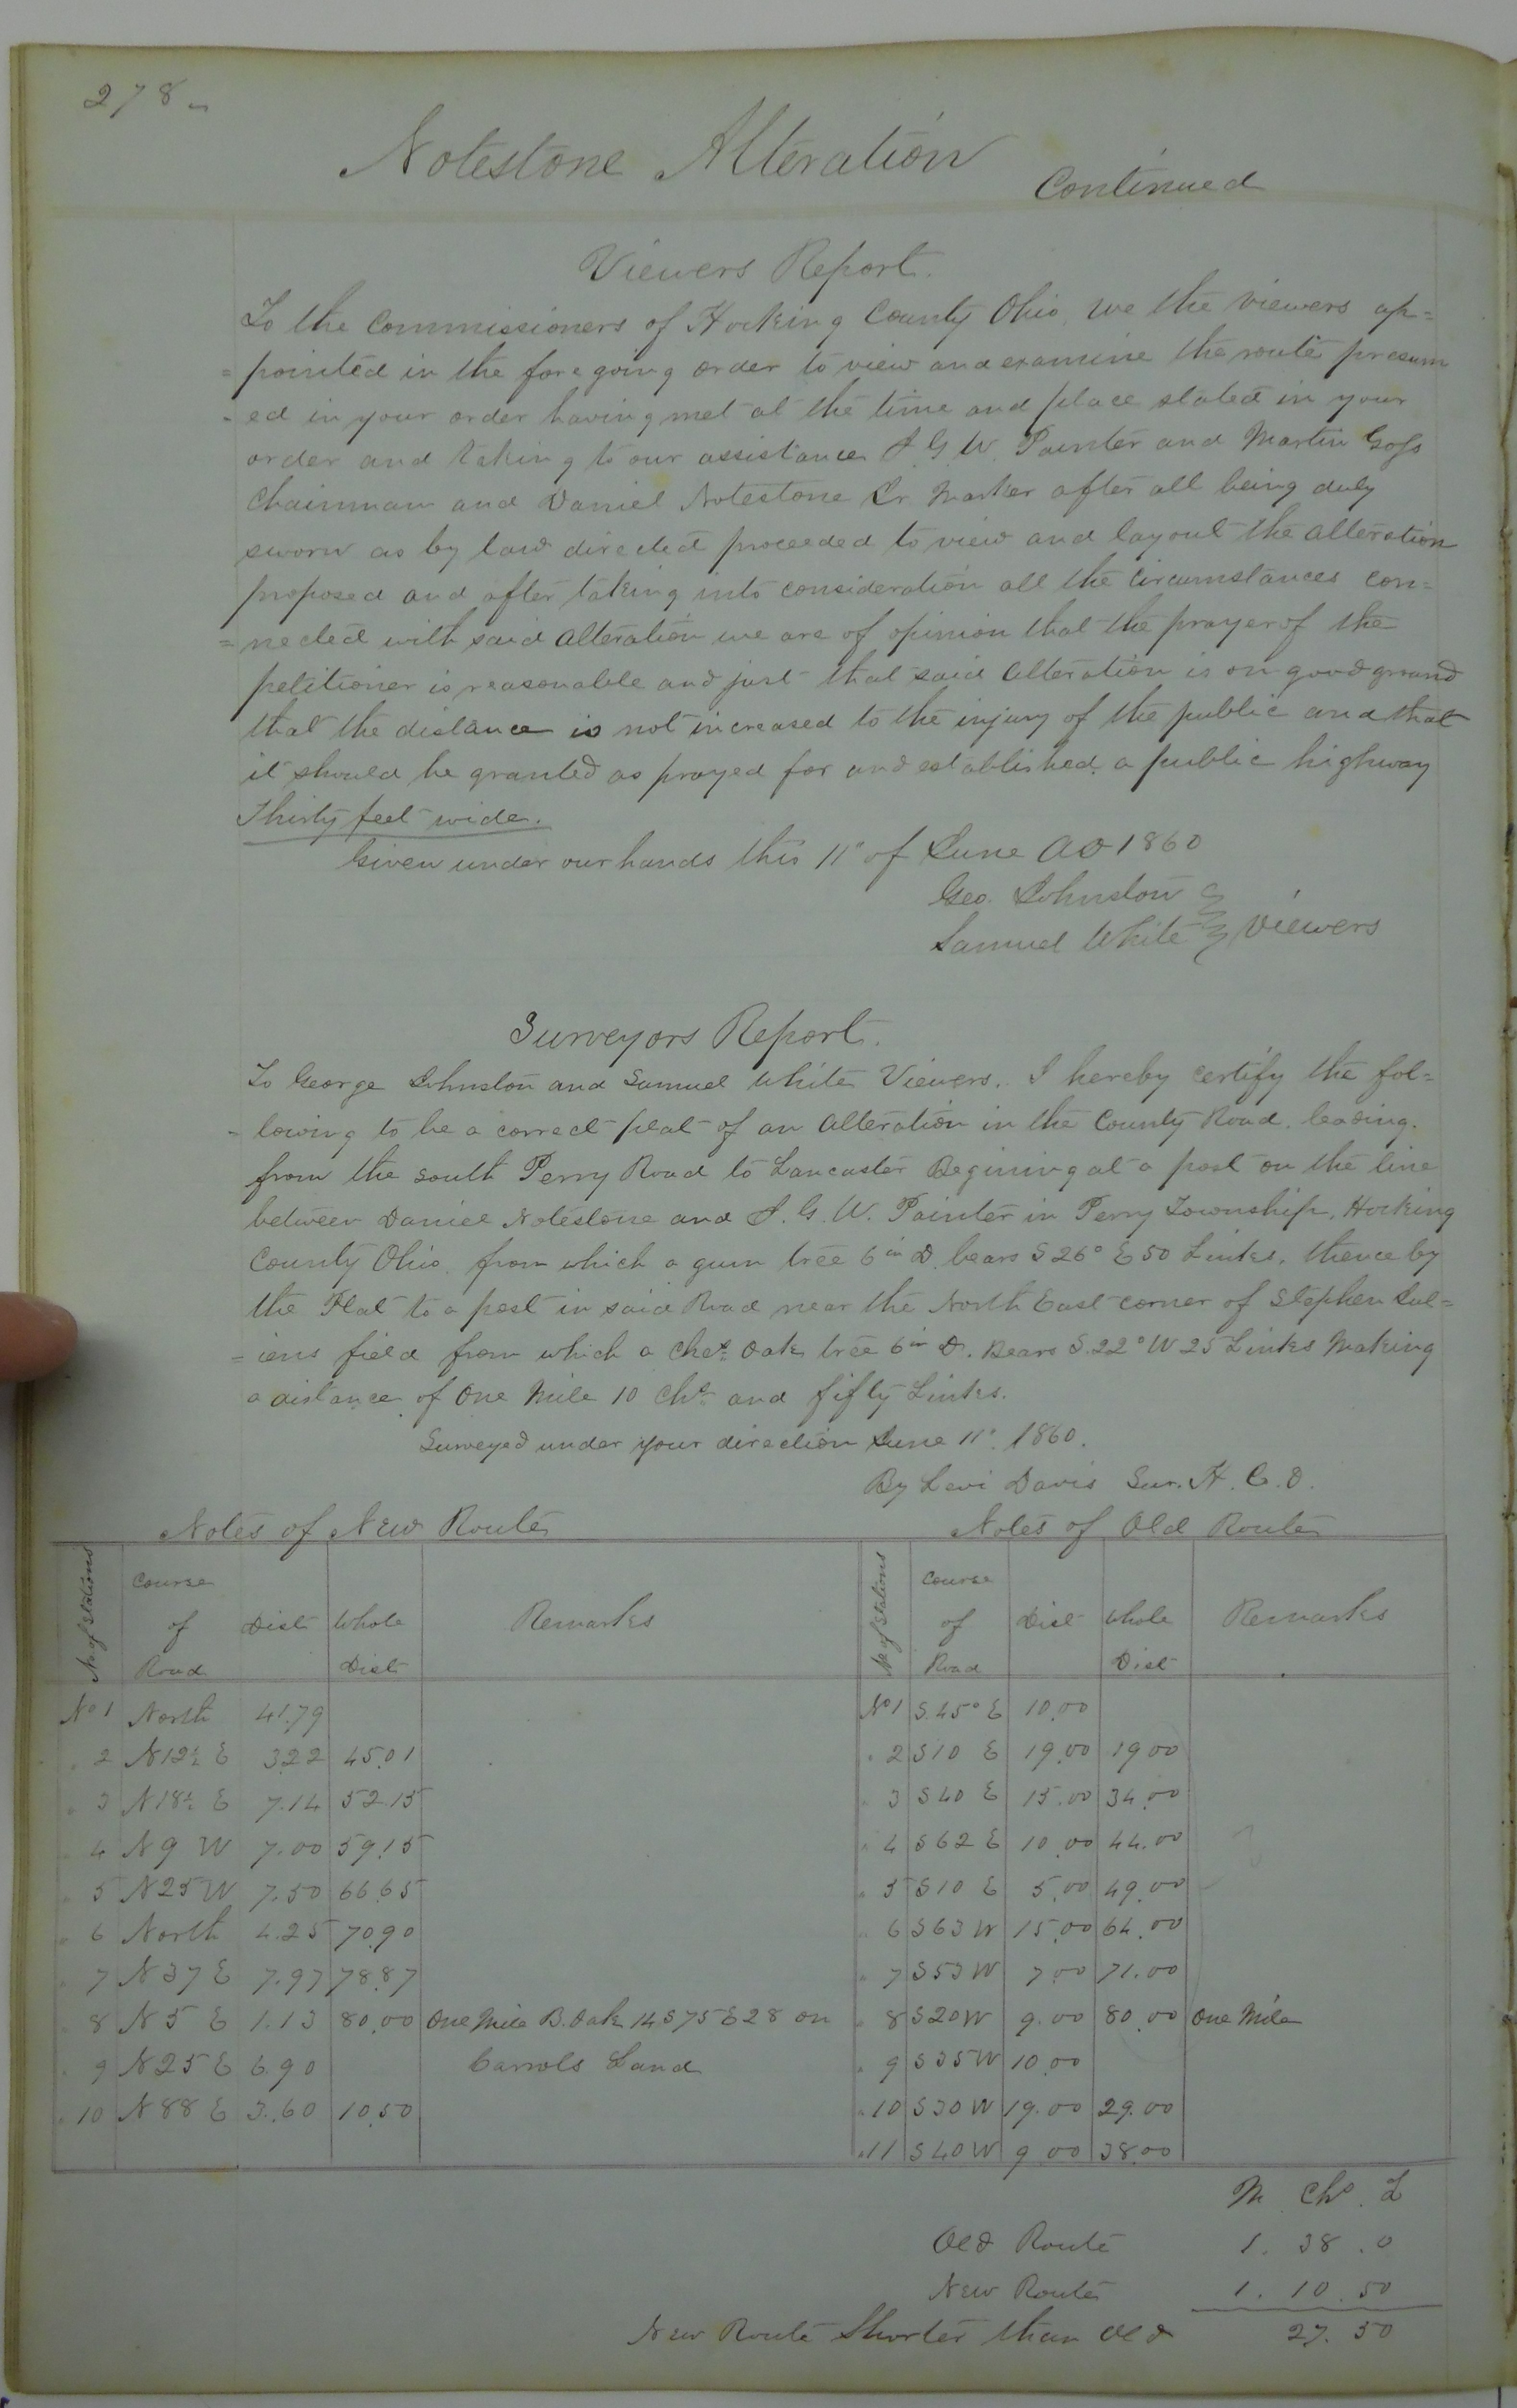 278
Notestone Alteration Continued
Viewers Report.
To the Commissioners of Hocking County Ohio. We the viewers ap=
=pointed in the foregoing order to view and examine the route presum
-ed in your order having met at the time and place stated in your
order and taking to our assistance J. G. W. Painter and Martin Goss
Chainman and Daniel Notestone Jr Marker after all being duly
sworn as by law directed proceeded to view and layout the alteration
proposed and after taking into consideration all the circumstances con=
=nected with said alteration we are of opinion that the prayer of the
petitioner is reasonable and just that said alteration is on good ground
that the distance is not increased to the injury of the public and that
it should be granted as prayed for and established a public highway
Thirty feet wide.
Given under our hands this 11" of June AD 1860
Geo. Johnston
Samuel White } Viewers
Surveyors Report.
To George Johnston and Samuel White Viewers. I hereby certify the fol=
-lowing to be a correct plat of an alteration in the County Road. leading.
from the south Perry Road to Lancaster Begining at a post on the line
between Daniel Notestone and J. G. W. Painter in Perry Township, Hocking
County Ohio. from which a gum tree 6 in D. bears S 26° E 50 Links. thence by
the Flat to a post in said Road near the North East corner of Stephen Jul=
=iens field from which a Chest Oak tree 6 in D. Bears S. 22° W 25 Links Making
a distance of One Mile 10 Chs and fifty Links.
Surveyed under your direction June 11" 1860.
By Levi Davis Sur. H. C. O.
Notes of New Route
No of Stations Course of Road Dist Whole Dist Remarks
No 1 North 41.79
" 2 N12½ E 3.22 45.01
" 3 N18½ E 7.14 52.15
" 4 N9 W 7.00 59.15
" 5 N25 W 7.50 66.65
" 6 North 4.25 70.90
" 7 N37 E 7.97 78.87
" 8 N5 E 1.13 80.00 One Mile B. Oak 14 S75 E 28 on
" 9 N25 E 6.90 Carrols Land
" 10 N88 E 3.60 10.50
Notes of Old Route
No of Stations Course of Road Dist Whole Dist Remarks
No 1 S.45° E 10.00
" 2 S10 E 19.00 19.00
" 3 S40 E 15.00 34.00
" 4 S62 E 10.00 44.00
" 5 S10 E 5.00 49.00
" 6 S63 W 15.00 64.00
" 7 S53 W 7.00 71.00
" 8 S20 W 9.00 80.00 One Mile
" 9 S35 W 10.00
" 10 S30 W 19.00 29.00
" 11 S40 W 9.00 38.00
M Chs. L
Old Route 1. 38. 0
New Route 1. 10. 50
New Route Shorter than Old 27. 50